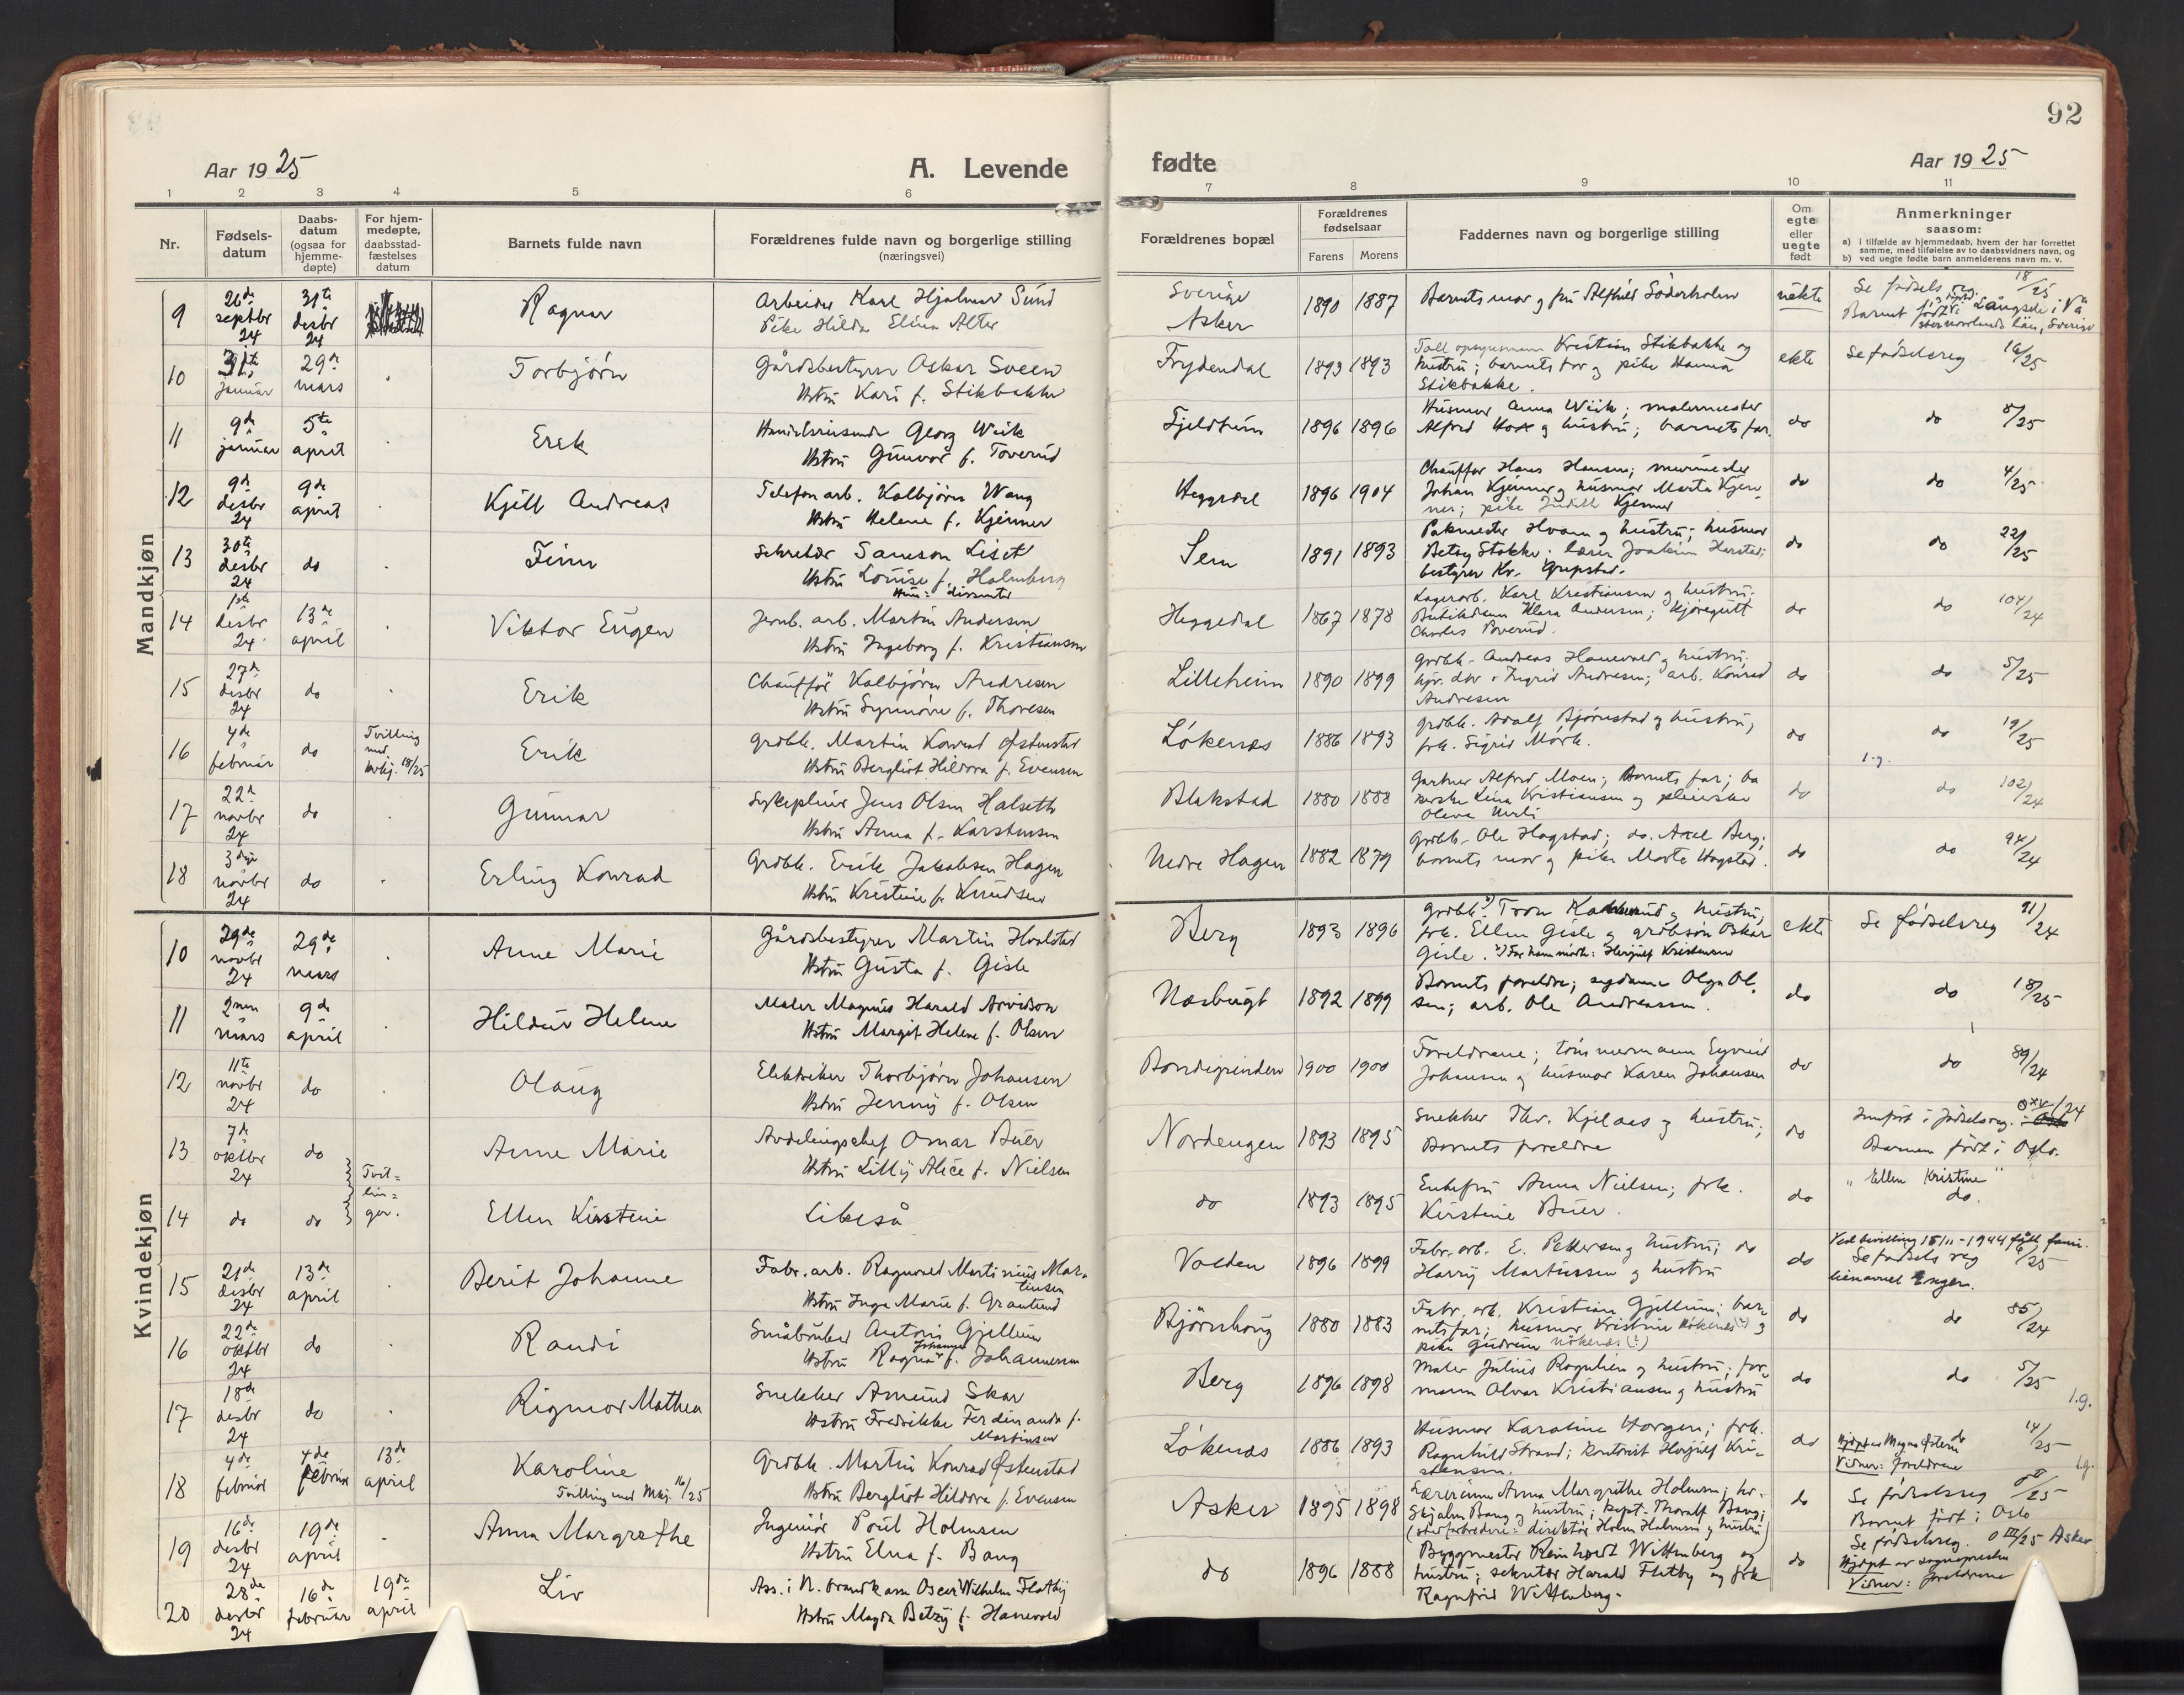 92
Aar 1925
A. Levende
fødte
Aar 1925
1 2 3 4 5 6
7 8 9 10 11
Nr.
Fødsels-
datum
Daabs-
datum
(ogsaa for
hjemme-
døpte)
For hjem-
medøpte,
daabsstad-
fæstelses
datum
Barnets fulde navn
Forældrenes fulde navn og borgerlige stilling
(næringsvei)
Forældrenes bopæl
Forældrenes
fødselsaar
Farens Morens
Faddernes navn og borgerlige stilling
Om
egte
eller
uegte
født
Anmerkninger
saasom:
a) i tilfælde av hjemmedaab, hvem der har forrettet
samme, med tilføielse av to daabsvidners navn, og
b) ved uegte fødte barn anmelderens navn m. v.
Mandkjøn
9
26de
septbr
24
31te
desbr
24
Ragnar
Arbeider Karl Hjalmar Sund
Pike Hilda Elina Alter
Sverige
Asker
1890 1887
Barnets mor og fru Alfhild Söderholm
uekte
Se fødselsreg. 18/25
Barnet født i Långsele i Vä
sternorrlands län, Sverige
10
31te
januar
29de
mars
Torbjørn
Gårdsbestyrer Oskar Sveen
Hstru Kari f. Stikbakke
Frydendal
1893 1893
Kristian Stikbakke og
hustru; barnets far og pike Hanna
Stikbakke.
ekte
Se fødselsreg 16/25
11
9de
januar
5te
april
Erik
Handelsreisende Georg Wiik
Hstru Gunvor f. Toverud
Fjeldheim
1896 1896
Husmor Anna Wiik; malermester
Alfred og hustru; barnets far.
do
do 8/25
12
9de
desbr
24
9de
april
Kjell Andreas
Telefonarb. Kolbjørn Wang
Hstru Helene f. Kjenner
Heggedal
1896 1904
Chauffør Hans Hansen; murmester
Johan Kjenner og husmor Marta Kjen-
ner; pike Judith Kjenner
do
do 4/25
13
30te
desbr
24
do
Finn
Sekretær Samson Liset
Hstru Louise f. Holmberg
Hun: dissenter
Sem
1891 1893
Pakmester Hvam og hustru; husmor
Betsy Stokke; lærer Joakim Harstad;
bestyrer Kr. Grepstad.
do
do 22/25
14
1ste
desbr
24
13de
april
Viktor Eugen
Jernb. arb. Martin Andersen
Hstru Ingeborg f. Kristiansen
Heggedal
1867 1878
Lagerarb. Karl Kristiansen og hustru;
Klara Andersen; kjøregutt
Charles Poverud.
do
do 104/24
15
27de
desbr
24
do
Erik
Chauffør Kolbjørn Andresen
Hstru Synnøve f. Thoresen
Lilleheim
1890 1899
Grdbr. Andreas Hanevold og hustru;
Ingrid Andresen; arb. Konrad
Andresen
do
do 5/25
16
4de
februar
do
Tvilling
med
kvkj. 18/25
Erik
Grdbr. Martin Konrad Østenstad
Hstru Bergliot Hildora f. Evensen
Løkenes
1886 1893
Grdbr. Adolf Bjørnstad og hustru;
frk. Sigrid Mörk.
do
do 19/25
I.g.
17
22de
novbr
24
do
Gunnar
Sykepleier Jens Olsen Halseth
Hstru Anna f. Karstensen
Blakstad
1880 1888
Gartner Alfred Moen; Barnets far; ba
nerske Lina Kristiansen og pleierske
Oleva
do
do 102/24
18
3dje
novbr
24
do
Erling Konrad
Grdbr. Erik Jakobsen Hagen
Hstru Kristine f. Knudsen
Nedre Hagen
1882 1879
Grdbr. Ole Hagstad; do. Axel Berg;
barnets mor og pike Marte Hagstad.
do
do 94/24
Kvindekjøn
10
29de
novbr
24
29de
mars
Anne Marie
Gårdsbestyrer Martin Hvalstad
Hstru Gusta f. Gisle
Berg
1893 1896
Grdbr. Tron og hustru;
frk. Ellen Gisle og grdbsøn Oskar
Gisle. For ham møtte: Herjulf Kristensen
ekte
Se fødselsreg 91/24
11
2nen
mars
9de
april
Hildur Helene
Maler Magnus Harald Arvidson
Hstru Margit Helene f. Olsen
Næsbugt
1892 1899
Barnets foreldre; sydame Olga Ol-
sen; arb. Ole Andreassen.
do
do 18/25
12
11te
novbr
24
do
Olaug
Elektriker Thorbjørn Johansen
Hstru Jenny f. Olsen
Bondigrinden
1900 1900
Foreldrene; tømmermann Eyvind
Johansen og husmor Karen Johansen
do
do 89/24
13
7de
oktbr
24
do
Tvil-
lin-
ger.
Anne Marie
Avdelingschef Omar Buer
Hstru Lilly Alice f. Nielsen
Nordengen
1893 1895
Snekker Thv. Kjelaas og hustru;
Barnets foreldre
do
Innført i fødselsreg. 0XV/24
Barnene født i Oslo.
14
do
do
Ellen Kirstine
Likeså
do
1893 1895
Enkefru Anna Nielsen; frk.
Kirstine Buer.
do
"Ellen Kristine"
do.
15
21de
desbr
24
13de
april
Berit Johanne
Fabr. arb. Ragnvald Martinius Mar-
tinsen
Hstru Inga Marie f. Granlund
Volden
1896 1899
Fabr. arb. E. Pettersen og hustru; do
Harry Martinsen og hustru
do
Ved bevilling 15/11-1944 fått fami-
Se fødselsreg 6/25
lienavnet Enger.
16
22de
oktbr
24
do
Randi
Småbruker Anton Gjellum
Hstru Ragna Johanne f. Johannessen
Bjørnhaug
1880 1883
Fabr. arb. Kristian Gjellum; bar-
nets far; husmor Kristine Nökenes(?) og
pike Gudrun Nökenes(?)
do
do 85/24
17
18de
desbr
24
do
Rigmor Mathea
Snekker Amund Skar
Hstru Fredrikke Ferdinanda f.
Martinsen
Berg
1896 1898
Maler Julius Rognlien og hustru; for-
mann Olvar Kristiansen og hustru
do
do 5/25
I.g.
18
4de
februar
4de
februar
13de
april
Karoline
Tvilling med Mkj. 16/25
Grdbr. Martin Konrad Østenstad
Hstru Bergliot Hildora f. Evensen
Løkenes
1886 1893
Husmor Karoline Horgen; frk.
Ragnhild Strand; kontorist Herjulf Kri-
stensen.
do
do 14/25
Vidner: foreldrene
I.g.
19
16de
desbr
24
19de
april
Anna Margrethe
Ingeniør Poul Holmsen
Hstru Elna f. Bang
Asker
1895 1898
Lærerinne Anna Margrethe Holmsen; hr.
Skjalm Bang og hustru; kapt. Thoralf Bang;
(storforeldre: direktör Holm Holmsen og hustru)
do
Se fødselsreg 0II/25
Barnet født i Oslo
20
28de
desbr
24
16de
februar
19de
april
Liv
Ass. i N. brandkasse Oscar Wilhelm Flatby
Hstru Magda Betzy f. Hanevold
do
1896 1888
Byggmester Reinhardt Wittenberg og
hustru; sekretær Harald Flatby og frk
Ragnfrid Wittenberg.
do
Se fødselsreg. 0III/25 Asker
Hjdøpt av sognepresten
Vidner: foreldrene